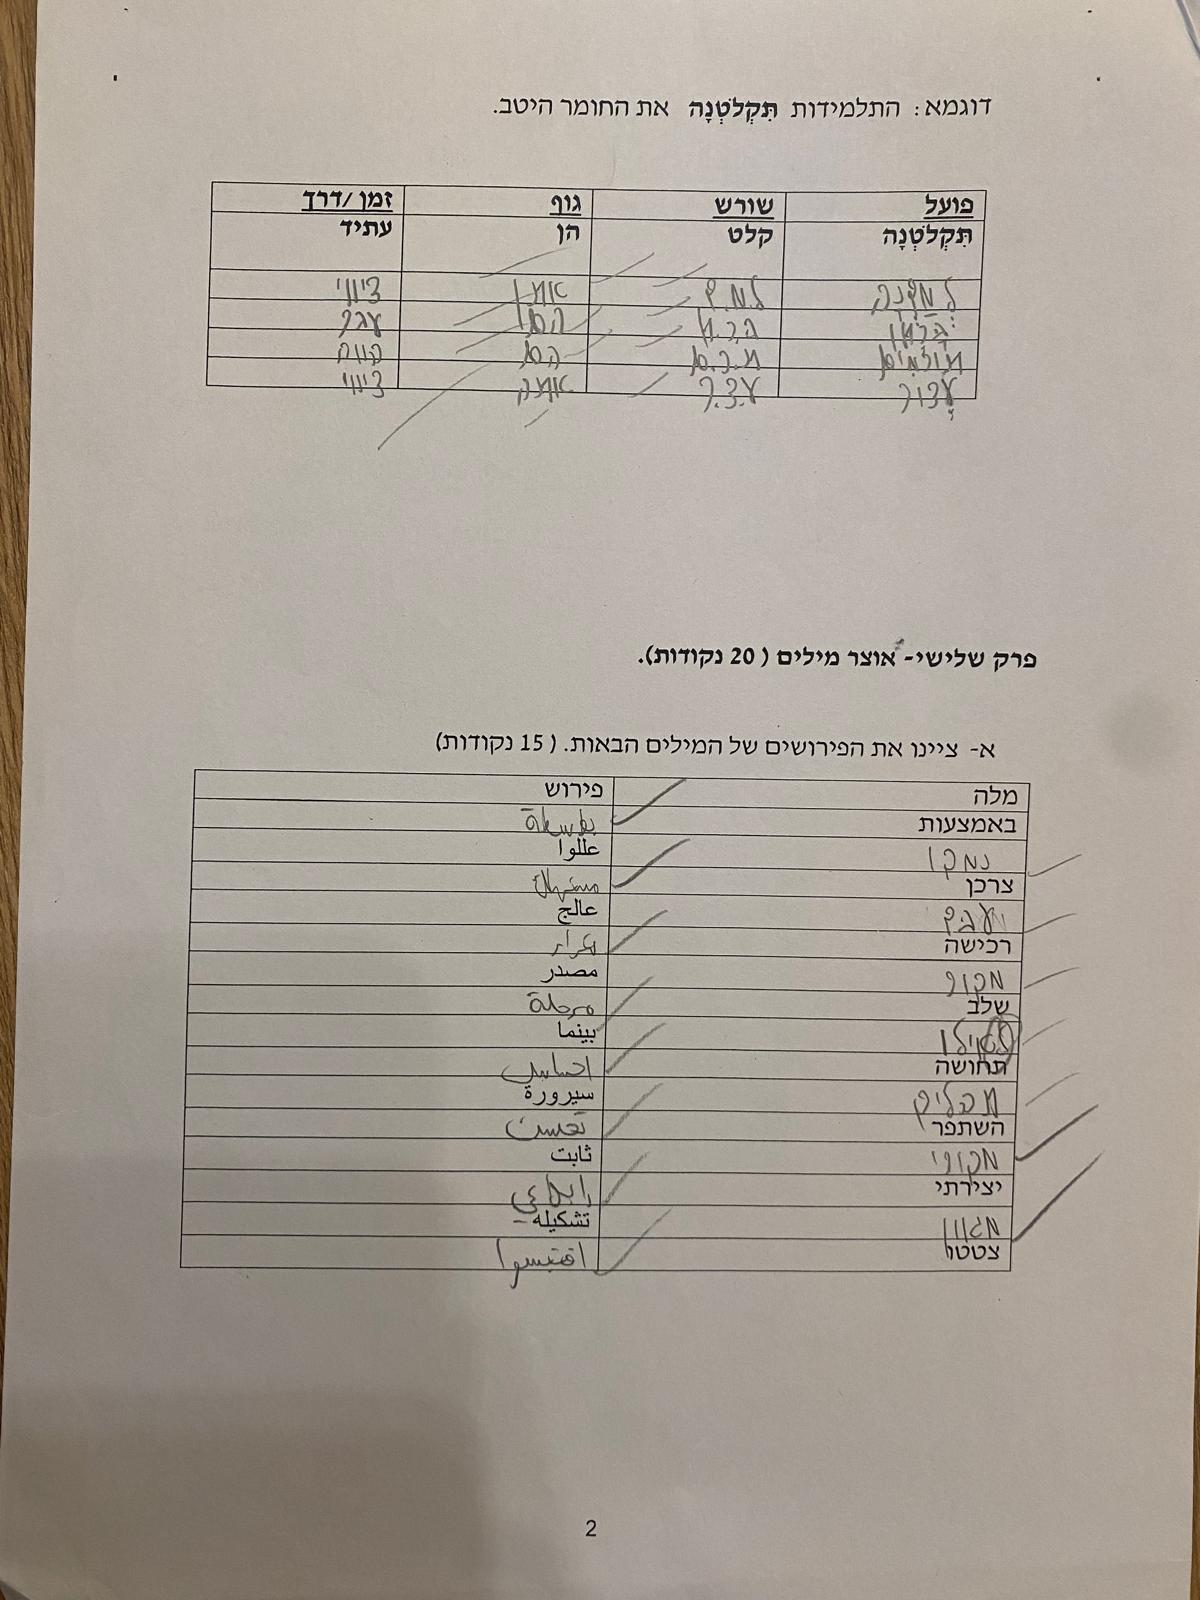 דוגמא: התלמידות תִּקְלֹטְנָה את החומר היטב.
פועל שורש גוף זמן /דרך
תִּקְלֹטְנָה קלט הן עתיד
ציווי
עבר
הם הווה
עצור ע.צ.ר אתה ציווי
פרק שלישי- אוצר מילים ( 20 נקודות).
א- ציינו את הפירושים של המילים הבאות. ( 15 נקודות)
מלה פירוש
באמצעות بواسطة
נמקו عللوا
צרכן مستهلك
עالج
רכישה
מקור مصدر
שלב مرحلة
ואילו بينما
תחושה احساس
תהליך سيرورة
השתפר تحسن
ثابت
יצירתי ابداعي
מגוון تشكيله –
צטטו اقتبسوا
2